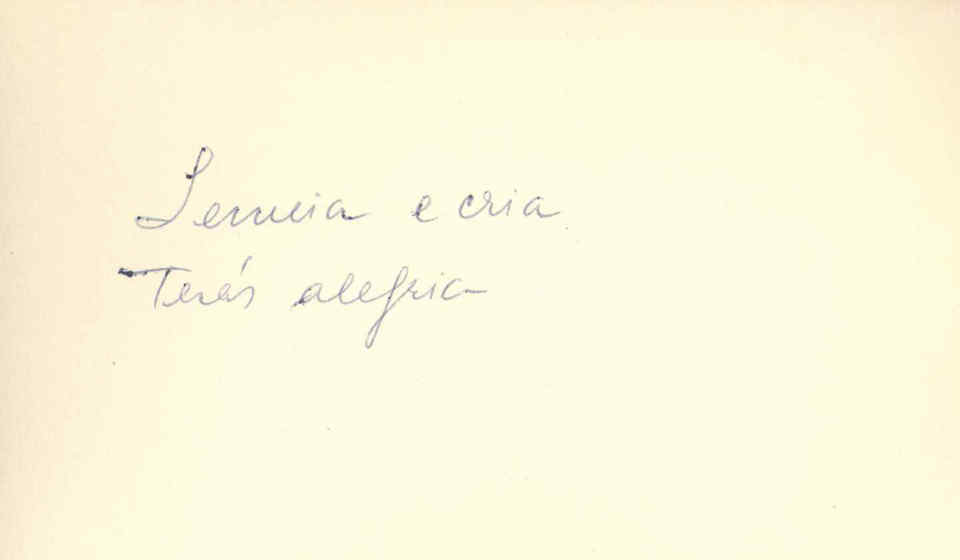 Semeia e cria
Terás alegria